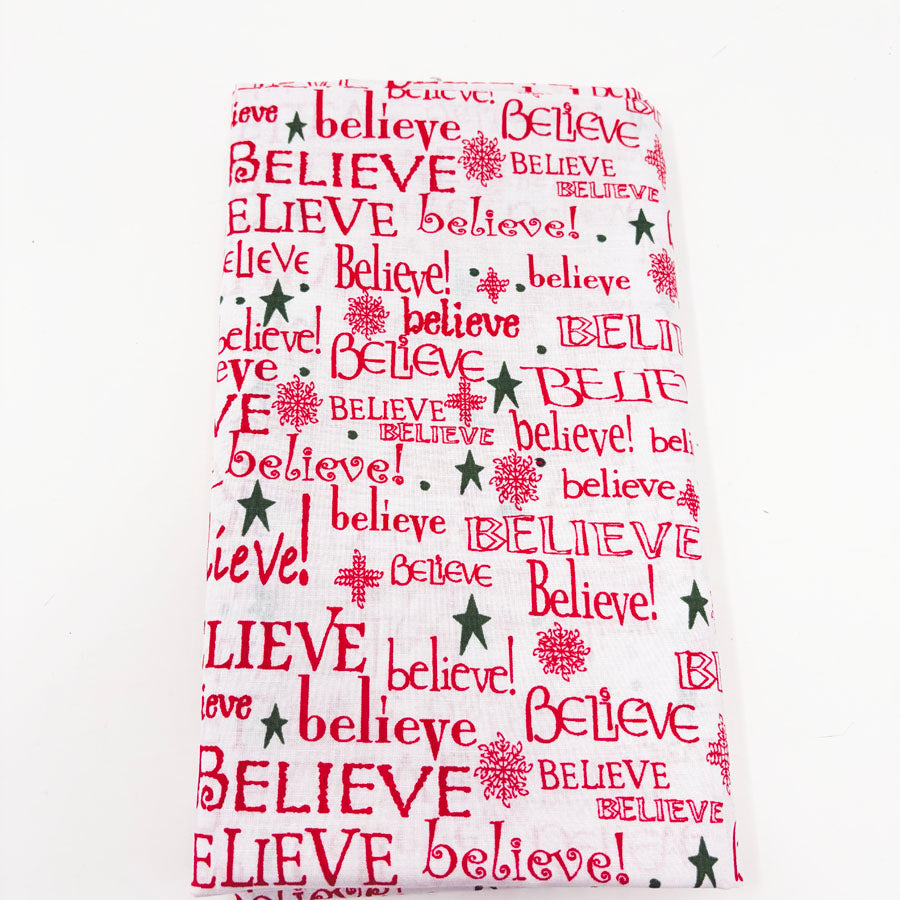 Believe!
ieve believe BELIEVE
BELIEVE BELIEVE
BELIEVE
ELIEVE believe!
ELIEVE Believe! believe
believe! believe BELIEVE
eve BELIEVE BELIEVE
VE BELIEVE
BELIEVE believe! beli
believe! believe
believe BELIEVE
lieve! BELIEVE Believe!
LIEVE believe! BE
ieve believe BELIEVE
BELIEVE BELIEVE
BELIEVE
ELIEVE believe!